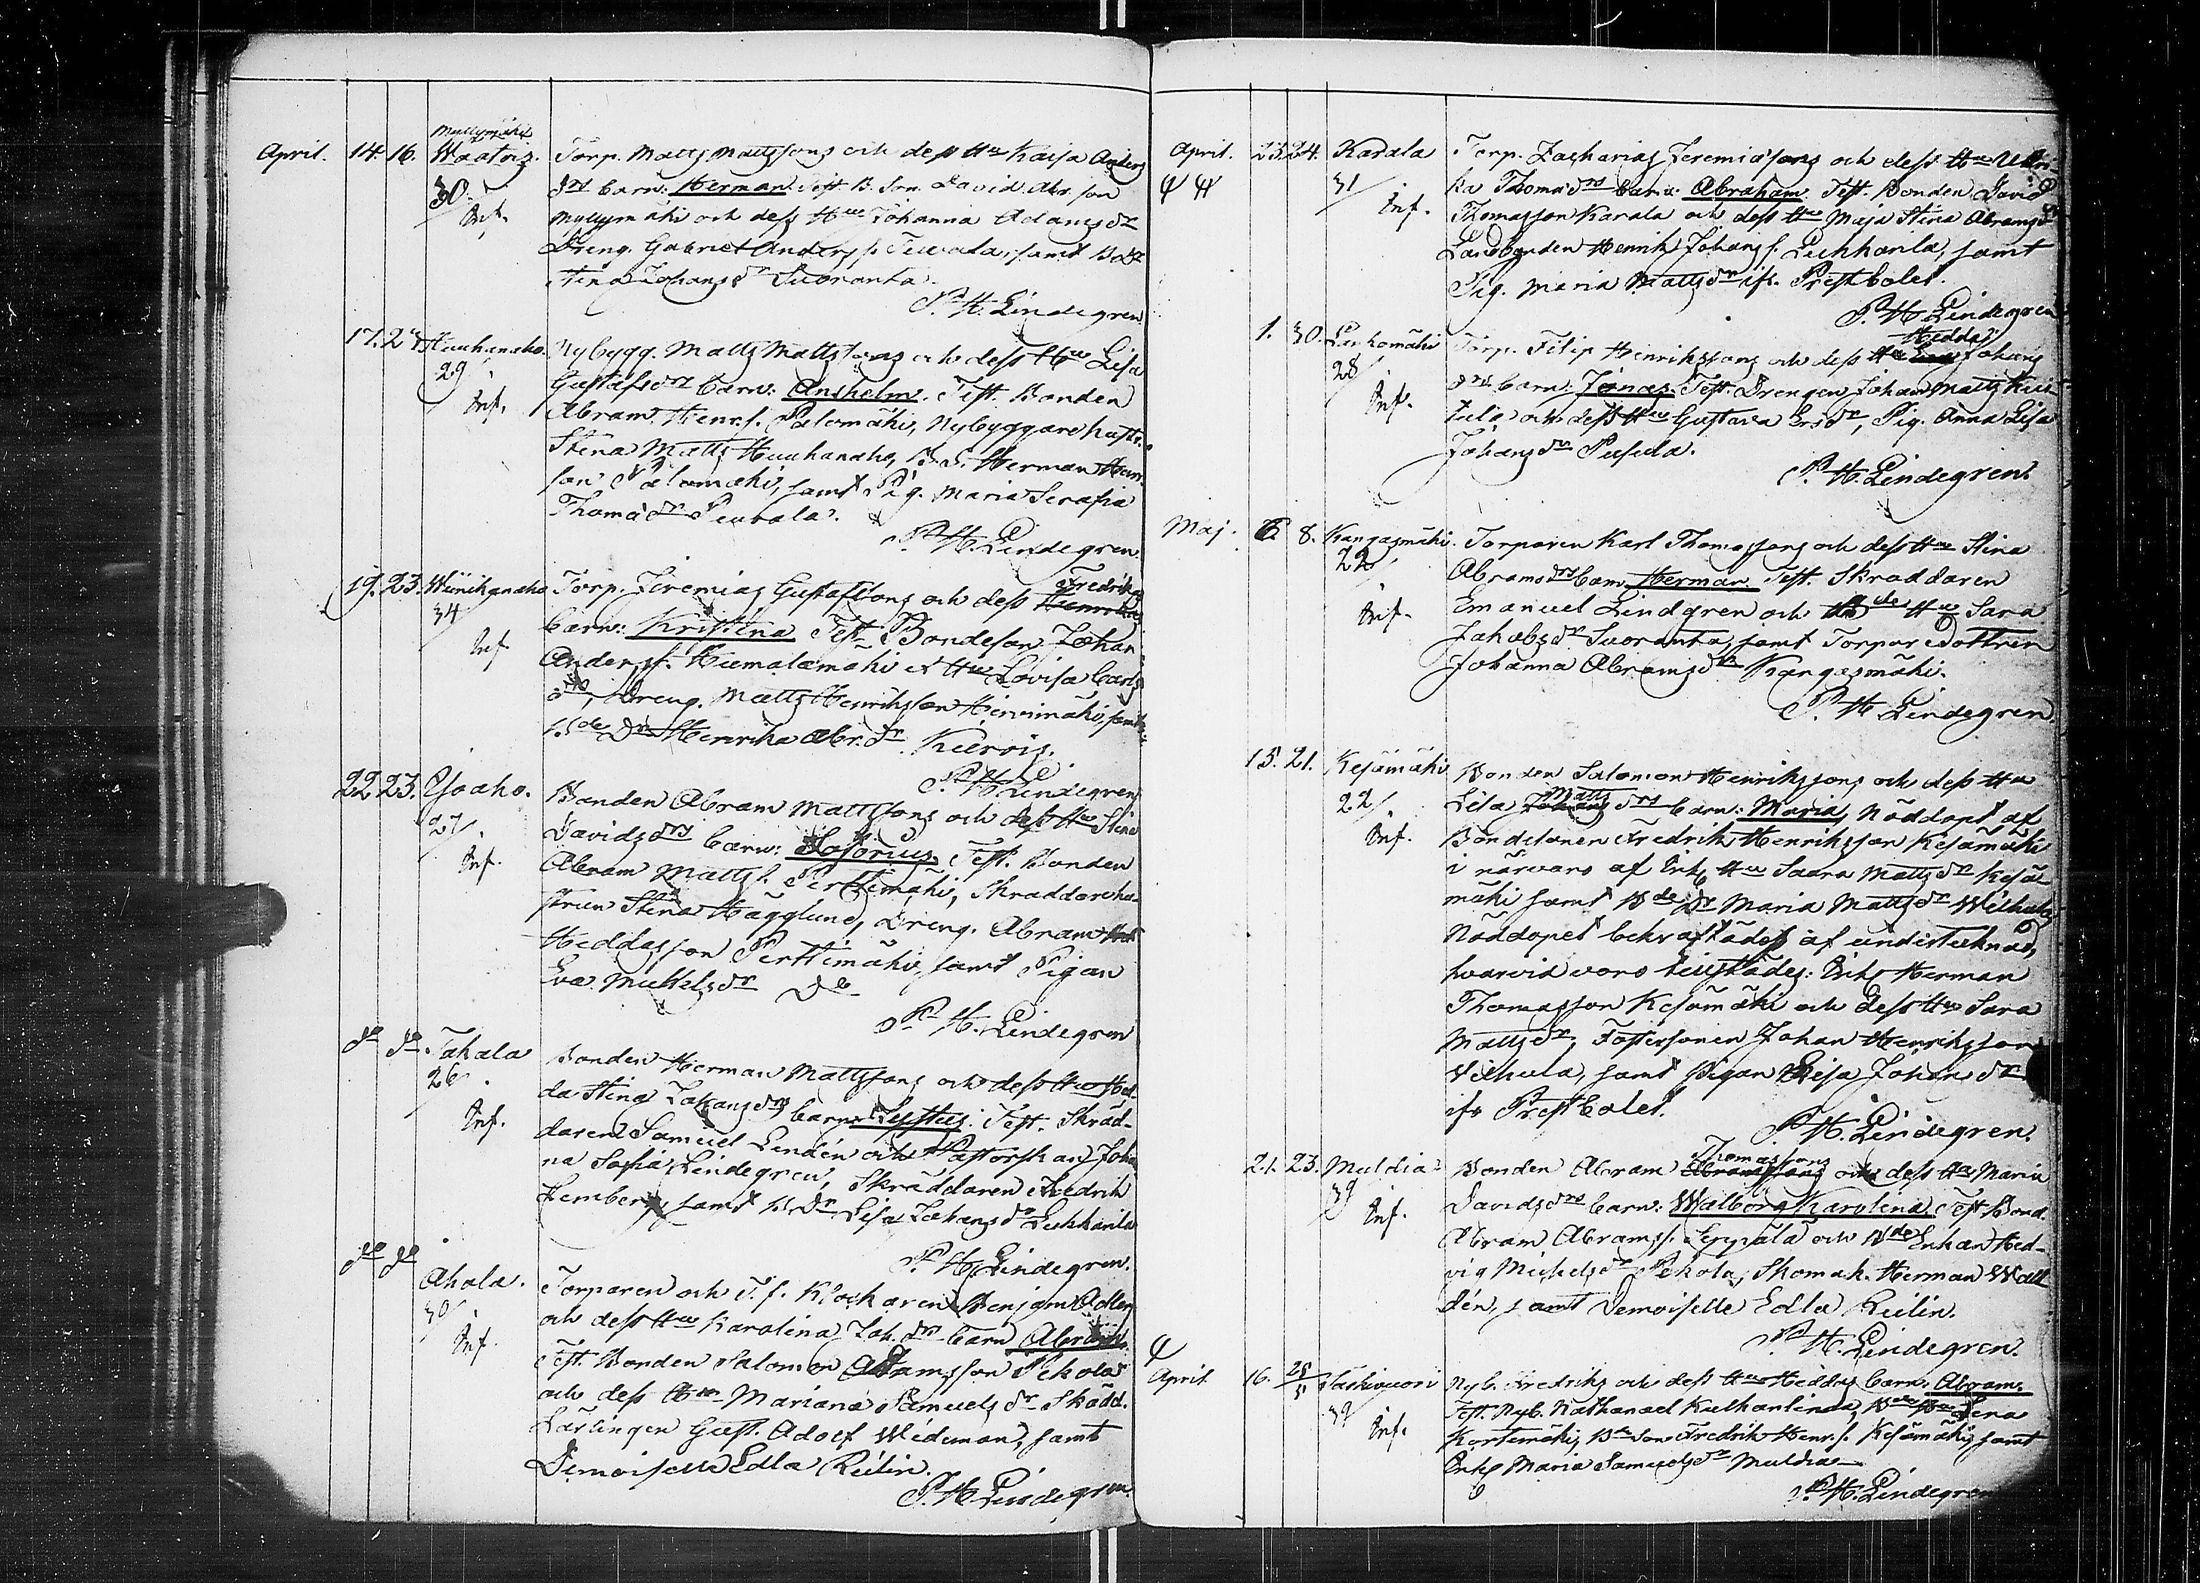 Myllymäki
April. 14. 16. Waatois. Torp. Matts Mattssons och dess Hu Kaisa Anders
30. drs barn: Herman. Test. B. Son. David Abr. son
Inf. Myllymäki och dess Hu Johanna Adamsdr
Dreng. Gabriel Anders s. Tuvala, samt B. dr
Stina Johansdr Suoranta.
P. H. Lindegren
17. 24. Huuhanaho. Nybygg. Matts Mattssons och dess Hu Lisa
29 Gustafsdrs barn: Anshelm. Test. Bonden
Inf. Abram. Henr. s. Palomäki, Nybyggare hustr.
Stina Matts Huuhanaho, B. S. Herman Henr.
son Palomäki, samt Pig. Maria Serafia
Thomædr Peurala.
P. H. Lindegren.
19. 23. Torp. Jeremias Gustafssons och dess Fredrika
34 barn: Kristina Test. Bondeson Johan
Inf Anders s. Humalamäki o. Hu Lovisa Carls
dr, Dreng. Matts Henriksson Hiirimäki, samt
Bde Dr Henrika Abr. dr Kuivois.
P. H. Lindegren
22. 23. Ysoaho. Bonden Abram Mattssons och dess Hu Stina
27/. Davidsdrs barn: Test. Bonden
Inf. Abram Matts s. Perttimäki, Skraddarehu-
strun Stina Hägglund, Dreng. Abram
Heddasson Perttimäki, samt Pigan
Eva Michelsdr Do
P. H. Lindegren
do do Tahala Bonden Herman Mattssons och dess Hu Hed-
26 da Stina Johansdrs barn: Test. Skräd-
Inf. daren Samuel Lindén och Pastorskan Johan-
na Sofia Lindegren, Skräddaren Fredrik
Hemberg, samt B Dr Lisa Johansdr Liukkanla
P. H. Lindegren.
do do Ahola. Torparen och T. f. Klockaren Benjam Adlers
30/. och dess Hu Karolina Joh. drs barn Abram.
Inf. Test. Bonden Salomon Adamsson Pekola
och dess Hu Mariana Samuels dr Skädd.
Lärlingen Gust. Adolf Wideman, samt
Demoiselle Edla Reilin.
P. H. Lindegren.
April. 23. 24. Karala Torp. Zacharias Jeremiæsons och dess Hu Ulri-
31/ ka Thomædrs barn: Abraham. Test. Bonden David
Inf. Thomasson Karala och dess Hu Maja Stina Abramsdr
Landbonden Henrik Johans s. Liukkanla, samt
Pig. Maria Mattsdr ifr. Prestbolet.
P. H. Lindegren
Heddas
1. 30. Torp. Filip Henrikssons och dess Hu Johans
28/ drs barn: Jonas. Test. Drengen Johan Matts
Inf. och dess Hu Gustava Ersdr, Pig. Anna Lisa
Johansdr Pusula.
P. H. Lindegren.
Maj. 6 8. Kangasmäki. Torparen Karl Thomassons och dess Hu Stina
22/ Abramsdrs barn Herman. Test. Skraddaren
Inf. Emanuel Lindgren och Hu Sara
Jakobsdr Suoranta, samt Torpare dottren
Johanna Abramsdr Kangasmäki.
P. H. Lindegren.
15. 21. Kesämäki Bonden Salomon Henrikssons och dess Hu
22/ Lisa Matts drs barn: Maria, Nöddopt af
Inf. Bondesonen Fredrik Henriksson Kesämäki
i närvaro af Enk Hu Saara Mattsdr Kesä-
mäki samt Bde Dr Maria Mattsdr Wilkula,
Nöddopet bekräftades af undertecknad,
hvarvid voro tillstädes: Enk. Herman
Thomasson Kesämäki och dess Hu Sara
Mattsdr, Fostersonen Johan Henriksson
Wilkula, samt pigan Lisa Johansdr
ifr Prestbolet.
P. H. Lindegren.
21. 23. Muldia Bonden Abram Thomassons och dess Hu Maria
39 Davidsdrs barn: Walborg Karolina. Test. Bond.
Inf. Abram Abrams s. Seppälä och Bde Enkan Hed-
vig Michelsdr Pekola, Skomak. Herman Wall
dén, samt Demoiselle Edla Reilin.
P. H. Lindegren.
April 16. 25/5 Nyb. Fredriks och dess Hu Heddas barn: Abram.
32 Test. Nyb. Nathanael Kulhanlinna, Lena
Inf. Kortemäki, Bde Son Fredrik Henr. s. Kesämäki, samt
Enk. Maria Samuelsdr Muldia
P. H. Lindegren